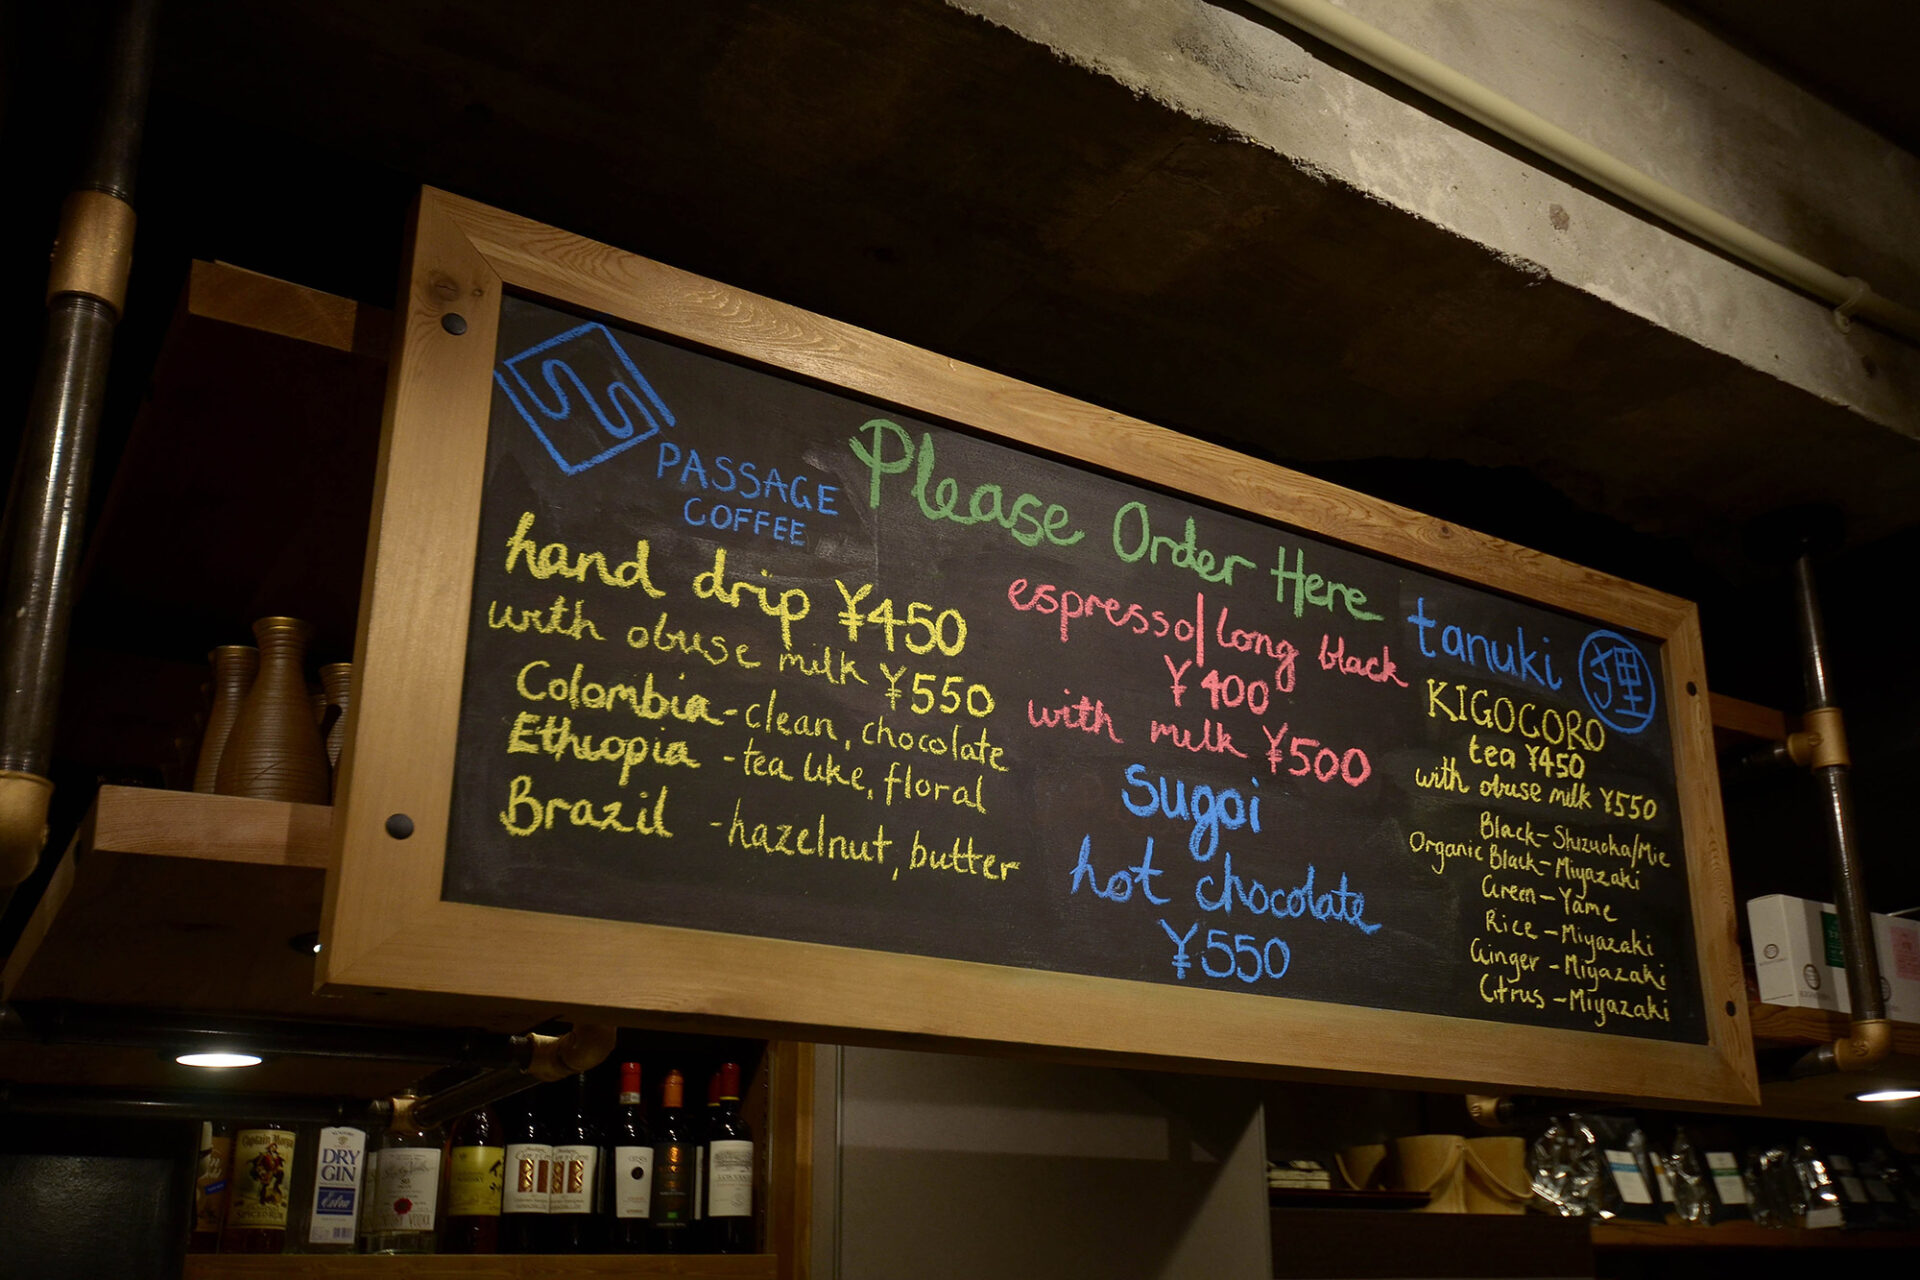 PASSAGE
COFFEE
Please Order Here
hand drip ¥450
with obuse milk ¥550
Colombia - clean, chocolate
Ethiopia - tea like, floral
Brazil - hazelnut, butter
espresso/long black
¥400
with milk ¥500
sugoi
hot chocolate
¥550
tanuki 狸
KIGOCORO
tea ¥450
with obuse milk ¥550
Black - Shizuoka/Mie
Organic Black - Miyazaki
Green - Yame
Rice - Miyazaki
Ginger - Miyazaki
Citrus - Miyazaki
Captain Morgan
DRY
GIN